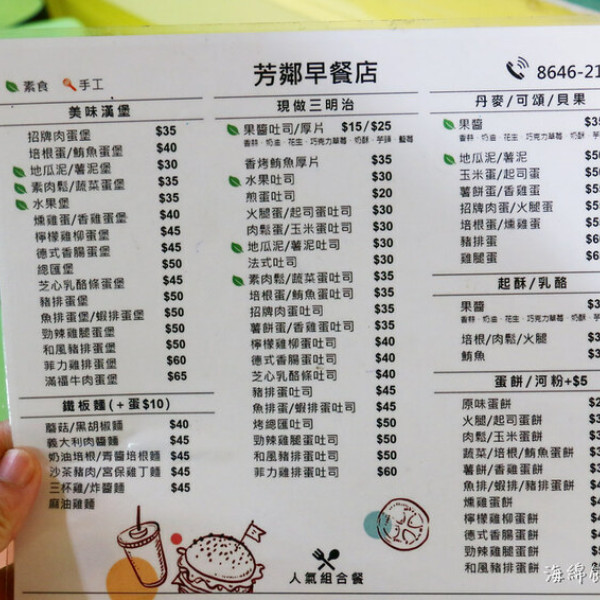 芳鄰早餐店
8646-21
素食 手工
美味漢堡
招牌肉蛋堡 $35
培根蛋/鮪魚蛋堡 $40
地瓜泥/薯泥堡 $30
素肉鬆/蔬菜蛋堡 $35
水果堡 $35
燻雞蛋/香雞蛋堡 $40
檸檬雞柳蛋堡 $45
德式香腸蛋堡 $45
總匯堡 $50
芝心乳酪條蛋堡 $45
豬排蛋堡 $50
魚排蛋堡/蝦排蛋堡 $50
勁辣雞腿蛋堡 $50
和風豬排蛋堡 $50
菲力雞排蛋堡 $60
滿福牛肉蛋堡 $65
鐵板麵(+蛋$10)
蘑菇/黑胡椒麵 $40
義大利肉醬麵 $45
奶油培根/青醬培根麵 $45
沙茶豬肉/宮保雞丁麵 $45
三杯雞/炸醬麵 $45
麻油雞麵
現做三明治
果醬吐司/厚片 $15/$25
香蒜、奶油、花生、巧克力草莓、奶酥、芋頭、藍莓
香烤鮪魚厚片 $35
水果吐司 $30
煎蛋吐司 $20
火腿蛋/起司蛋吐司 $30
肉鬆蛋/玉米蛋吐司 $30
地瓜泥/薯泥吐司 $30
法式吐司 $30
素肉鬆/蔬菜蛋吐司 $35
培根蛋/鮪魚蛋吐司 $35
招牌肉蛋吐司 $35
薯餅蛋/香雞蛋吐司 $35
檸檬雞柳蛋吐司 $40
德式香腸蛋吐司 $40
芝心乳酪條吐司 $40
豬排蛋吐司 $45
魚排蛋/蝦排蛋吐司 $45
烤總匯吐司 $50
勁辣雞腿蛋吐司 $50
和風豬排蛋吐司 $50
菲力雞排蛋吐司 $60
人氣組合餐
丹麥/可頌/貝果
果醬 $35
香蒜、奶油、花生、巧克力草莓、奶酥、芋
地瓜泥/薯泥 $50
玉米蛋/起司蛋 $50
薯餅蛋/香雞蛋 $5
招牌肉蛋/火腿蛋 $50
培根蛋/燻雞蛋 $5
豬排蛋 $60
雞腿蛋 $6
起酥/乳酪
果醬 $3
香蒜、奶油、花生、巧克力草莓、奶酥、芋
培根/肉鬆/火腿 $3
鮪魚 $3
蛋餅/河粉+$5
原味蛋餅 $2
火腿/起司蛋餅 $3
肉鬆/玉米蛋餅 $3
蔬菜/培根/鮪魚蛋餅 $3
薯餅/香雞蛋餅 $3
魚排/蝦排/豬排蛋餅 $4
燻雞蛋餅 $
檸檬雞柳蛋餅 $
德式香腸蛋餅 $
勁辣雞腿蛋餅 $
和風豬排蛋餅
海綿